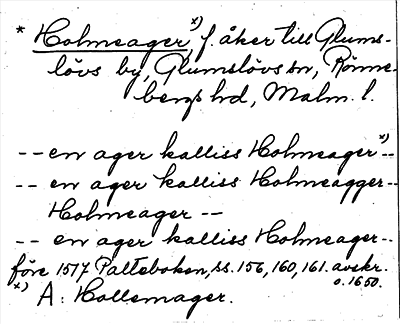 * Holmeager x), f. åker till Glums-
lövs by, Glumslövs sn, Rönne-
bergs hd, Malm. l.
-- en ager kalliss Holmeager x) --
-- en ager kalliss Holmeagger --
Holmeager --
-- en ager kalliss Holmeager --
före 1517 Palteboken, ss. 156, 160, 161. avskr.
o. 1650.
x) A: Hollemager.